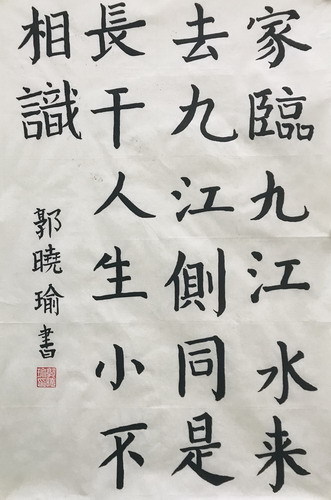 家臨九江水来
去九江側同是
長干人生小不
相識
郭曉瑜書